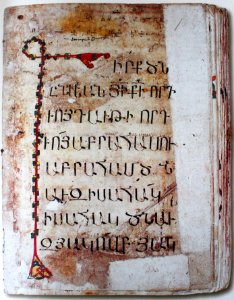 ԳԻՐՔ ԾՆ
ԸՆԴԵԱՆ ՅԻ ՔԻ ՈՐԴ
ՒՈՅ ԴԱՒԹԻ ՈՐԴ
ՒՈՅ ԱԲՐԱՀԱՄՈՒ
ԱԲՐԱՀԱՄ ԾՆ
ԱՒ ԶԻՍԱՀԱԿ
ԻՍԱՀԱԿ ԾՆԱՒ
ԶՅԱԿՈԲ ՅԱԿ